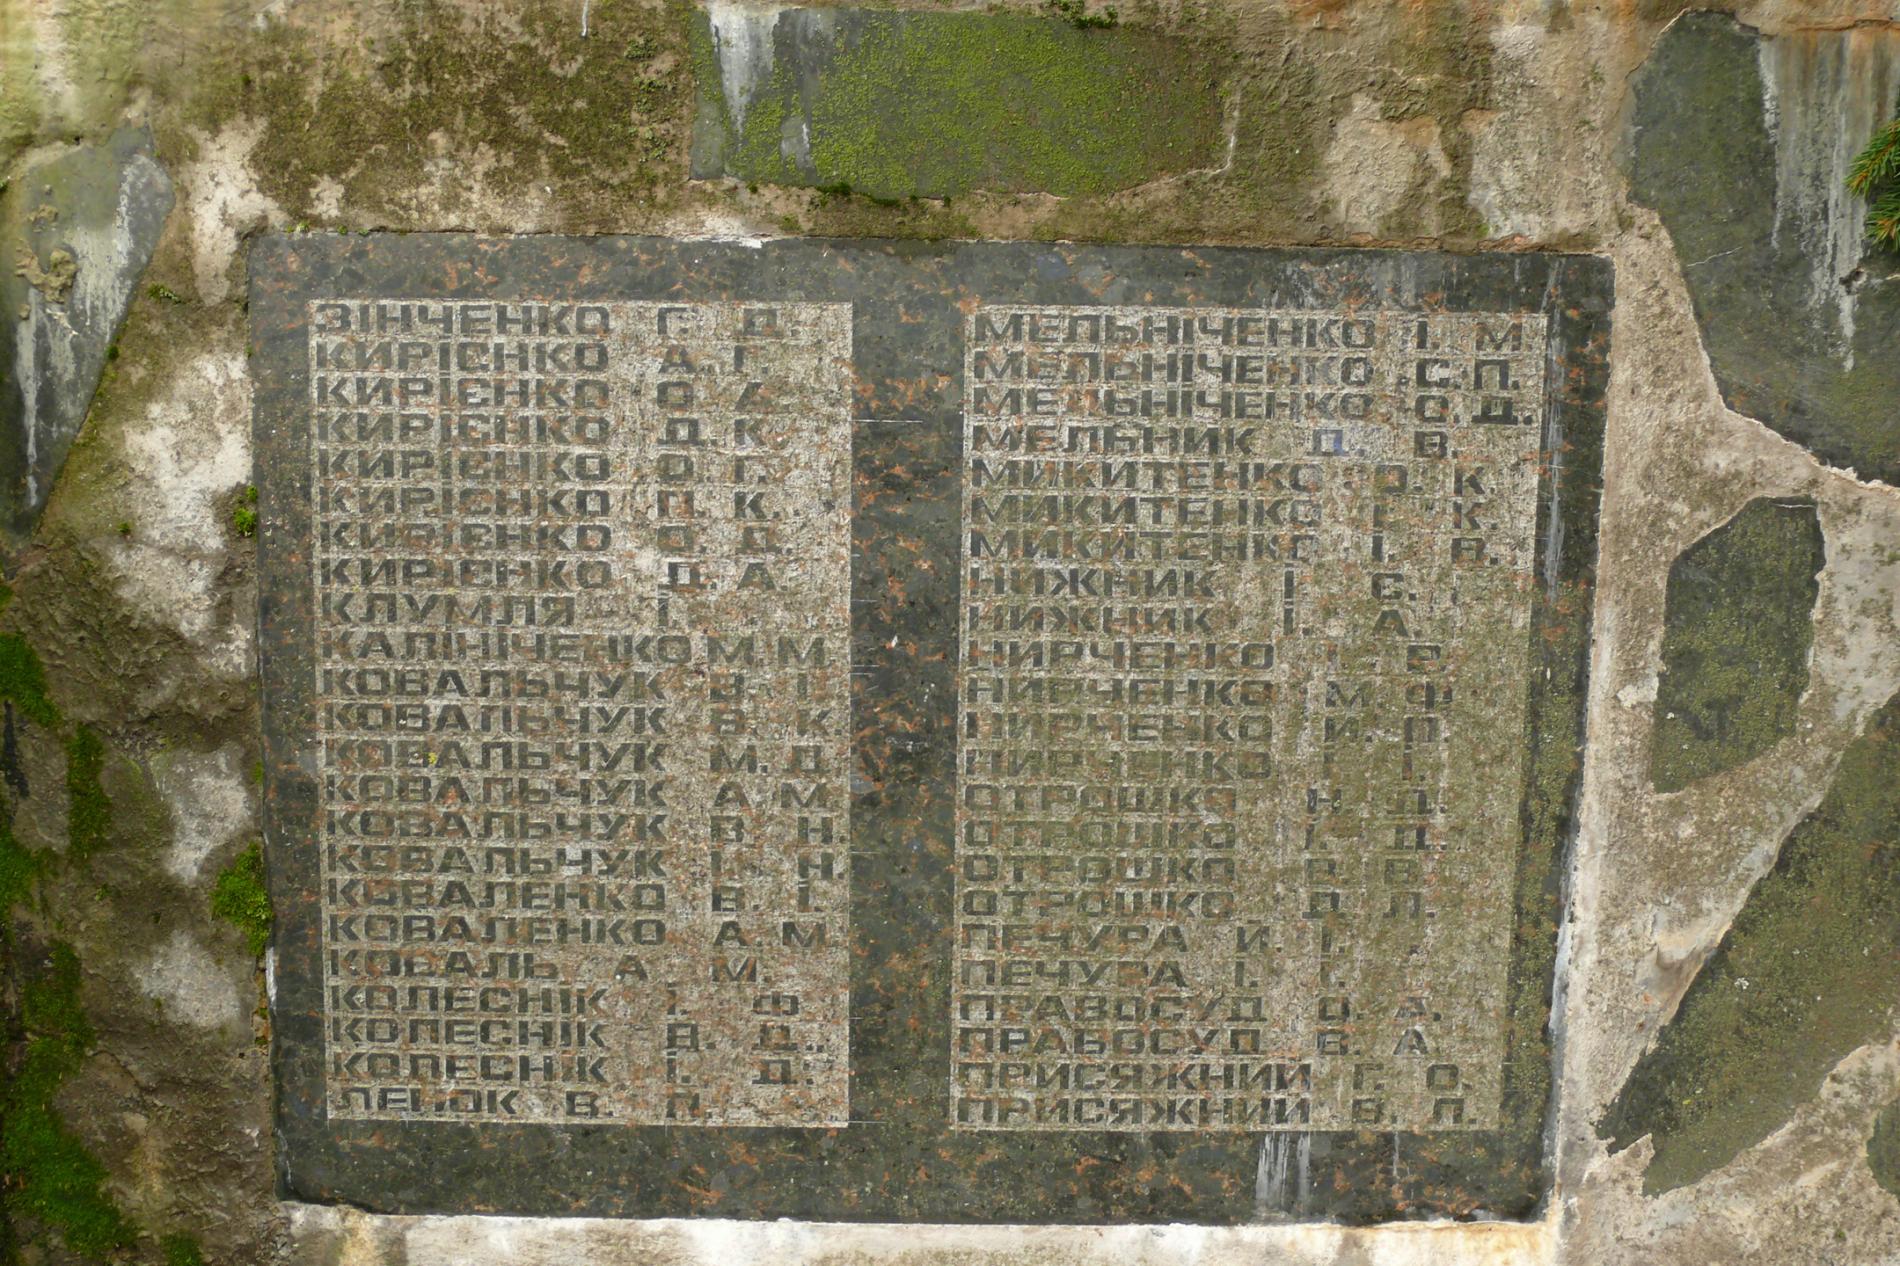 ЗІНЧЕНКО Г. Д.
КИРІЄНКО А. Г.
КИРІЄНКО О. А.
КИРІЄНКО Д. К.
КИРІЄНКО О. Г.
КИРІЄНКО П. К.
КИРІЄНКО О. Д.
КИРІЄНКО Д. А.
КЛУМЛЯ І.
КАЛІНІЧЕНКО М. М.
КОВАЛЬЧУК І.
КОВАЛЬЧУК В. К.
КОВАЛЬЧУК М. Д.
КОВАЛЬЧУК А. М.
КОВАЛЬЧУК В. Н.
КОВАЛЬЧУК Н.
КОВАЛЕНКО В. І.
КОВАЛЕНКО А. М.
КОВАЛЬ А. М.
КОЛЕСНІК І. Ф.
КОЛЕСНІК В. Д.
КОЛЕСНІК І. Д.
ЛЕНОК В.
МЕЛЬНІЧЕНКО І. М
МЕЛЬНІЧЕНКО С. П.
МЕЛЬНІЧЕНКО О. Д.
МЕЛЬНИК Д. В.
МИКИТЕНКО О. К.
МИКИТЕНКО К.
МИКИТЕНКО І. В.
НИЖНИК І С.
НИЖНИК І. А.
НИРЧЕНКО
НИРЧЕНКО М Ф
НИРЧЕНКО И. П
НИРЧЕНКО І.
ОТРОШКО Н Д.
ОТРОШКО І. Д.
ОТРОШКО В.
ОТРОШКО Д Л.
ПЕЧУРА И. І.
ПЕЧУРА І. І.
ПРАВОСУД О. А.
ПРАВОСУД В. А.
ПРИСЯЖНИЙ Г. О.
ПРИСЯЖНИЙ В. П.